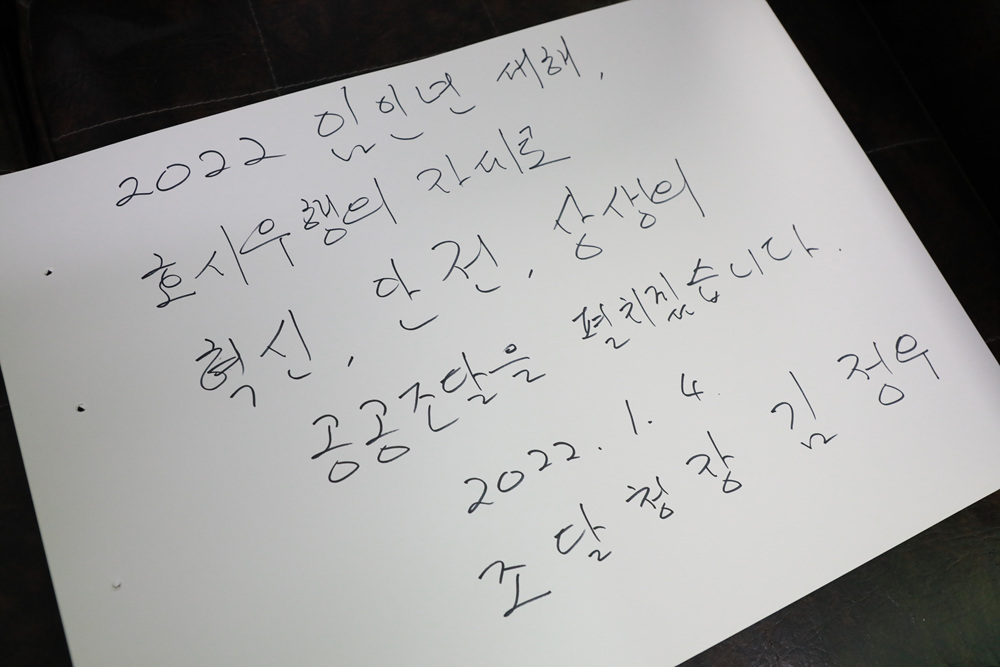 2022 임인년 새해,
호시우행의 자세로
혁신, 안전, 상생의
공공조달을 펼치겠습니다.
2022. 1. 4.
조달청장 김정우